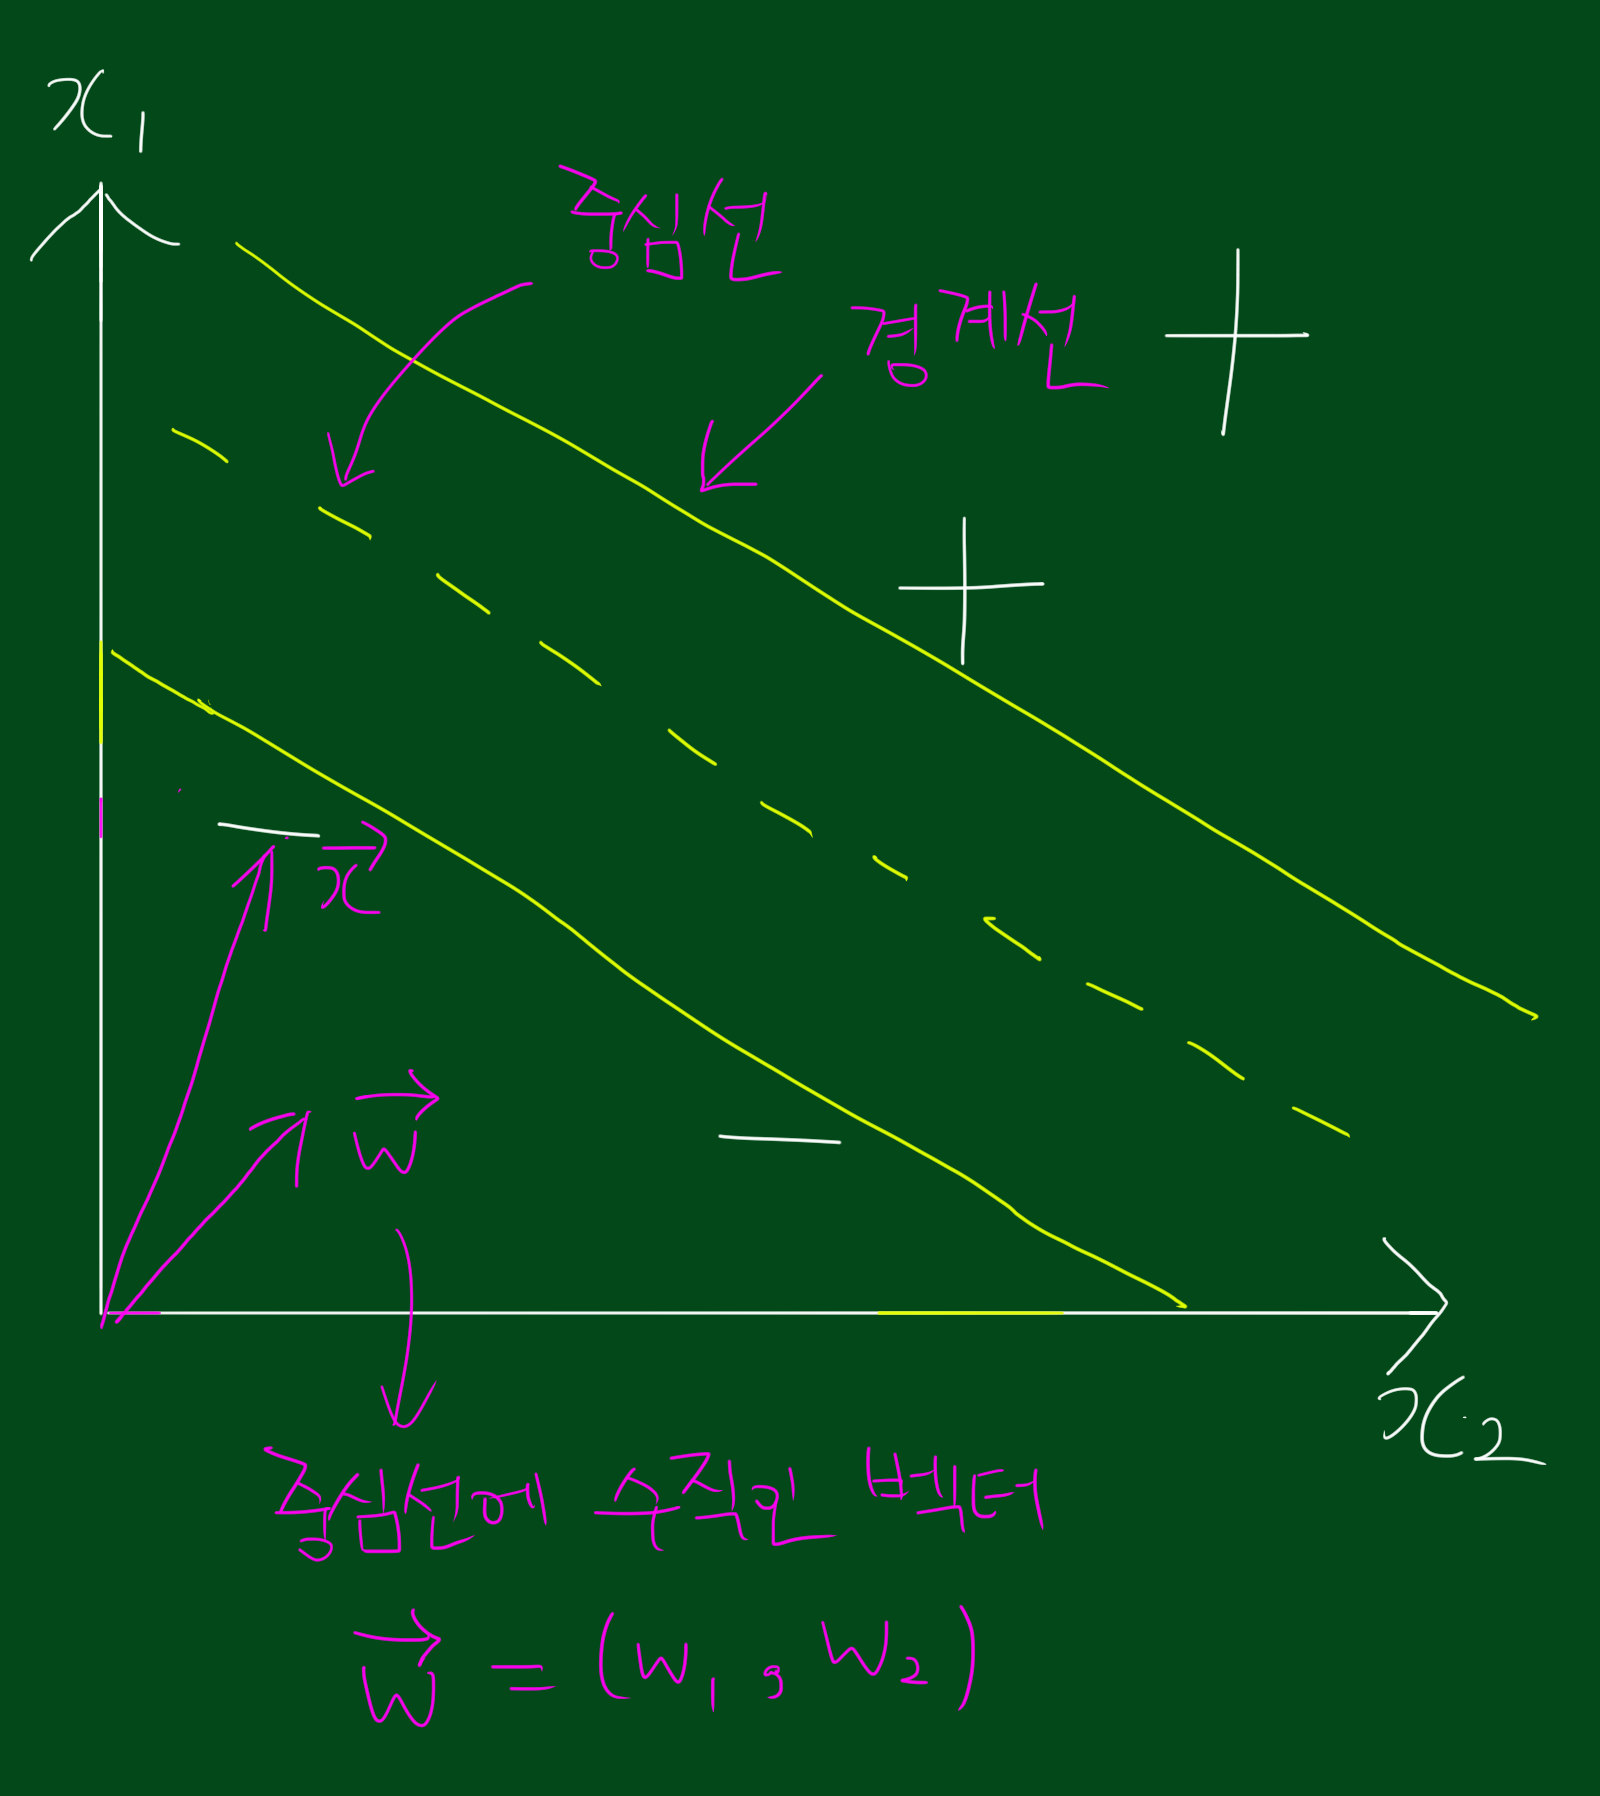 x₁
중심선
경계선
+
+
−
x⃗
w⃗
−
x₂
중심선에 수직인 벡터
w⃗ = (w₁, w₂)